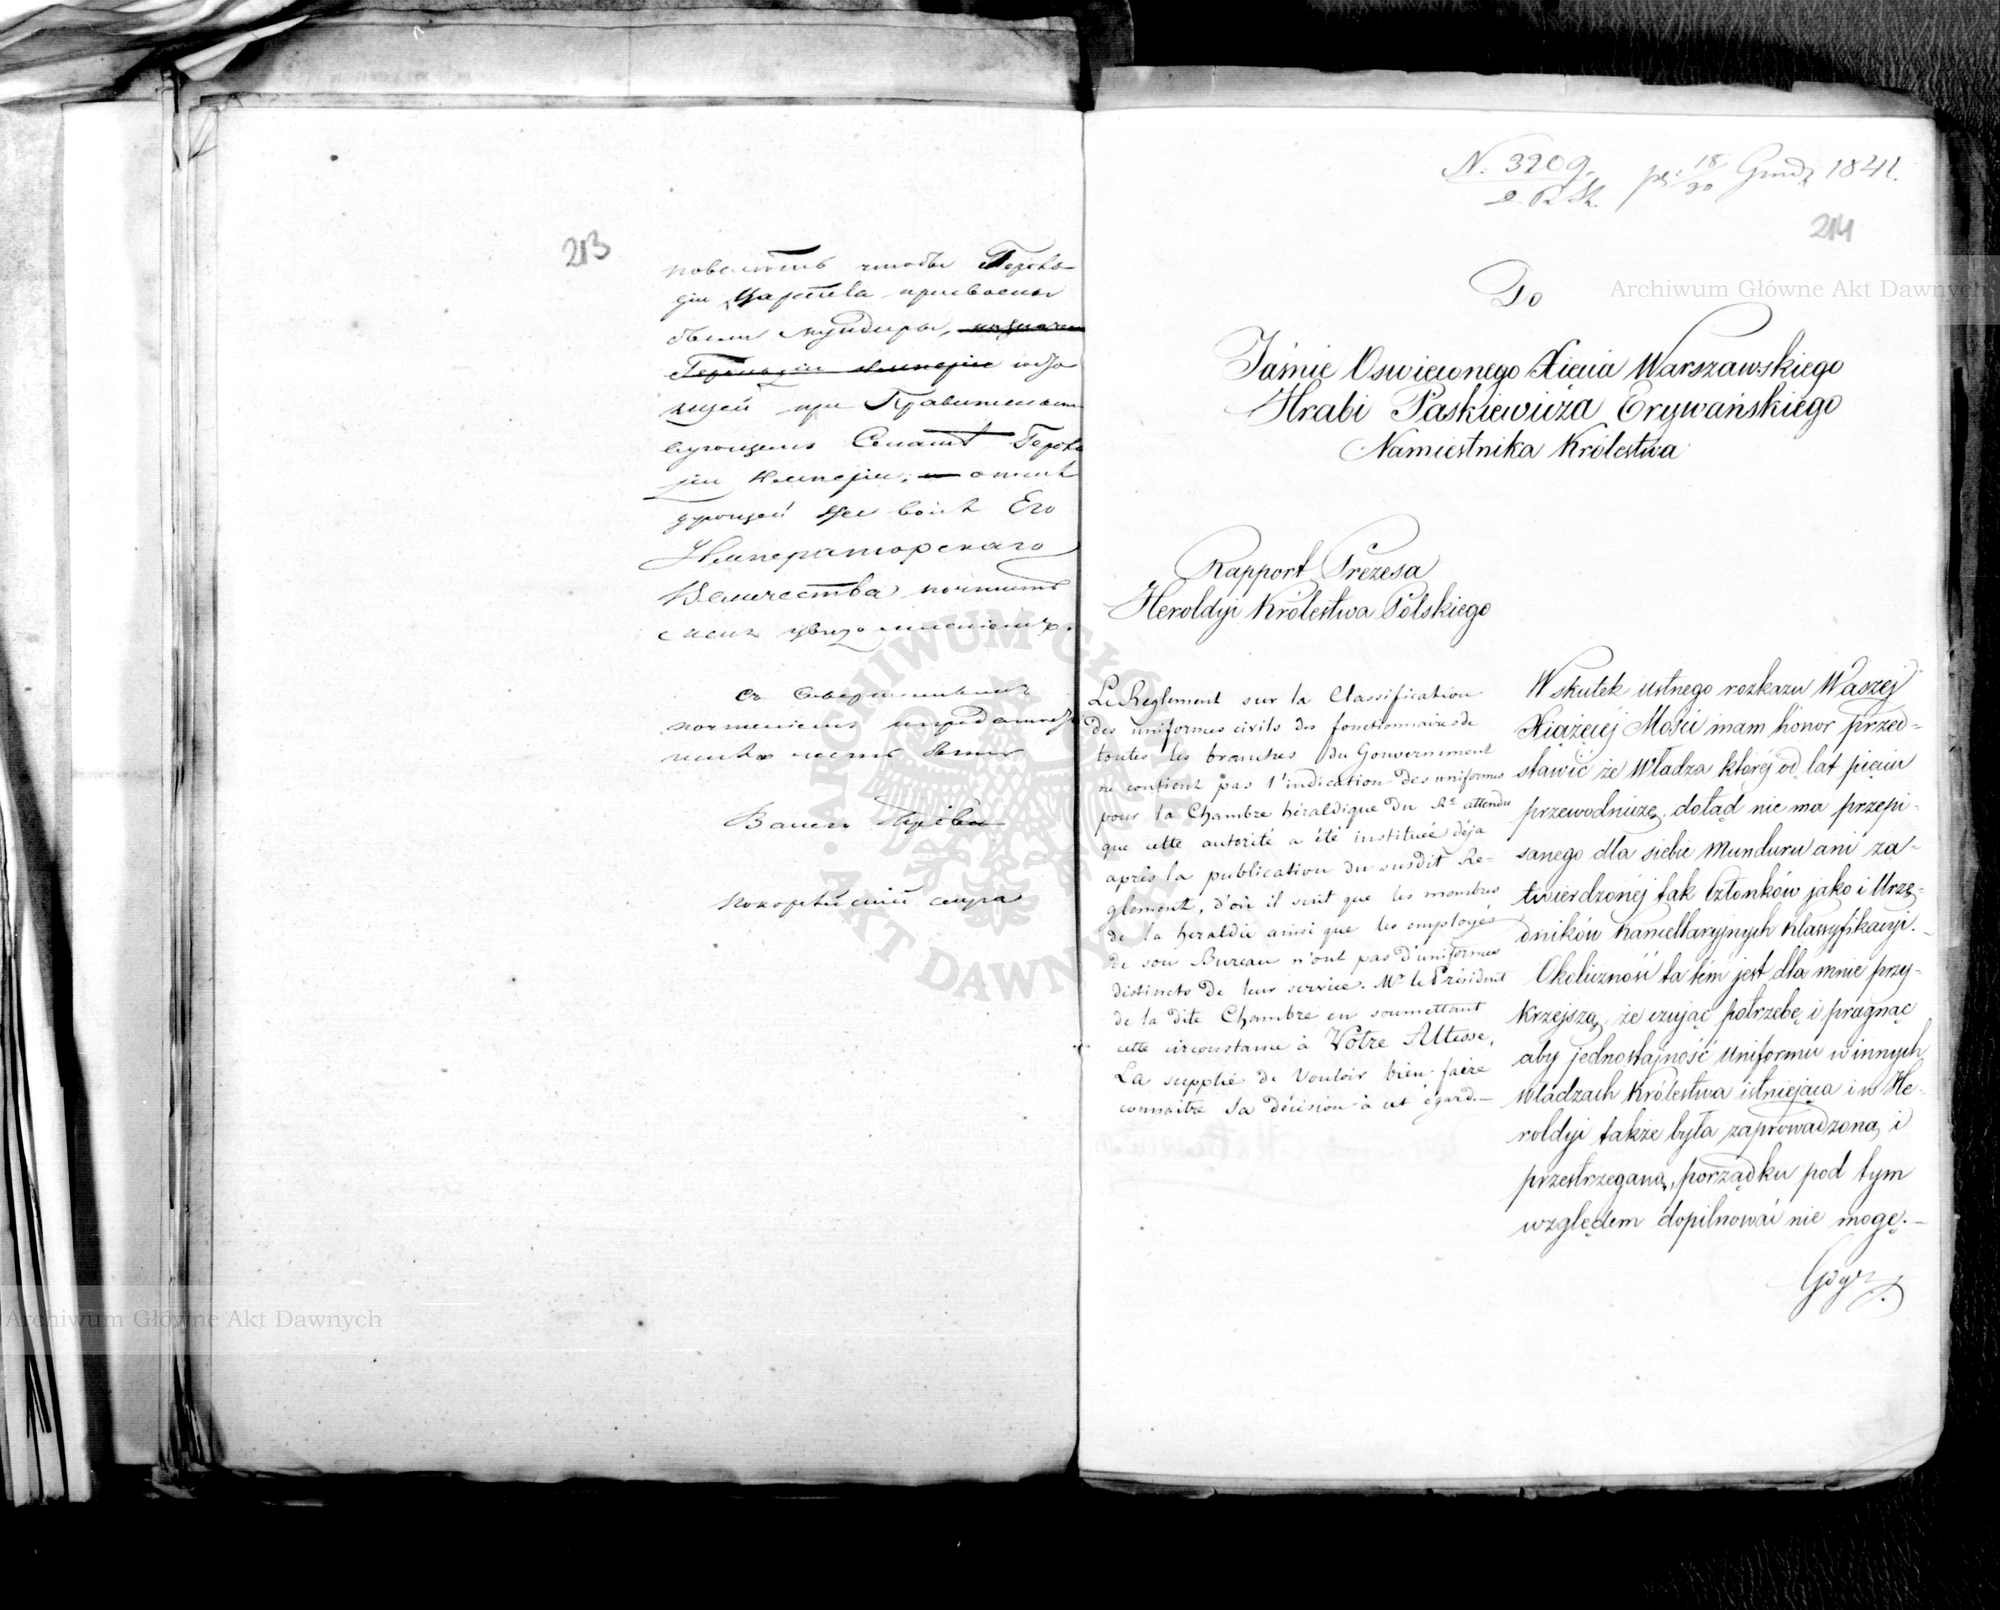 213
повелѣть чтобы Герольдіи Царства присвоены
были мундиры,
при Правительствующемъ Сенатѣ Герольдіи Имперіи,
Его
Императорскаго
Величества
съ совершеннымъ
почтеніемъ и преданностію
имѣю честь быть
Вашего
покорнѣйшій слуга
N. 3209.
18/30 Grudz 1841.
214
Do
Jaśnie Oswieconego Xięcia Warszawskiego
Hrabi Paskiewicza Erywańskiego
Namiestnika Królestwa
Rapport Prezesa
Heroldyi Królestwa Polskiego
Le Reglement sur la Classification
des uniformes civils des fonctionnaires de
toutes les branches du Gouvernement
ne contient pas l'indication des uniformes
pour la Chambre héraldique du Re attendu
que cette autorité a été instituée déja
après la publication du susdit Re-
glement, d'où il suit que les membres
de la heraldie ainsi que les employés
de son Bureau n'ont pas d'uniformes
distincts de leur service. Mr le Président
de la dite Chambre en soumettant
cette circonstance à Votre Altesse,
La supplie de vouloir bien faire
connaitre Sa décision à cet égard.—
Wskutek ustnego rozkazu Waszej
Xiążęcéj Mości mam honor przed-
stawić że Władza któréj od lat pięciu
przewodniczę, dotąd nie ma przepi-
sanego dla siebie Munduru ani za-
twierdzonéj tak Członków jako i Urzę-
dników Kancellaryjnych klassyfikacyi.—
Okoliczność ta tém jest dla mnie przy-
krzejszą, że czując potrzebę i pragnąc
aby jednostajność Uniformu w innych
władzach Królestwa istniejąca i w He-
roldyi także była zaprowadzoną i
przestrzeganą, porządku pod tym
względem dopilnować nie mogę.—
Gdyż
Archiwum Główne Akt Dawnych
Archiwum Główne Akt Dawnych
ARCHIWUM GŁÓWNE AKT DAWNYCH